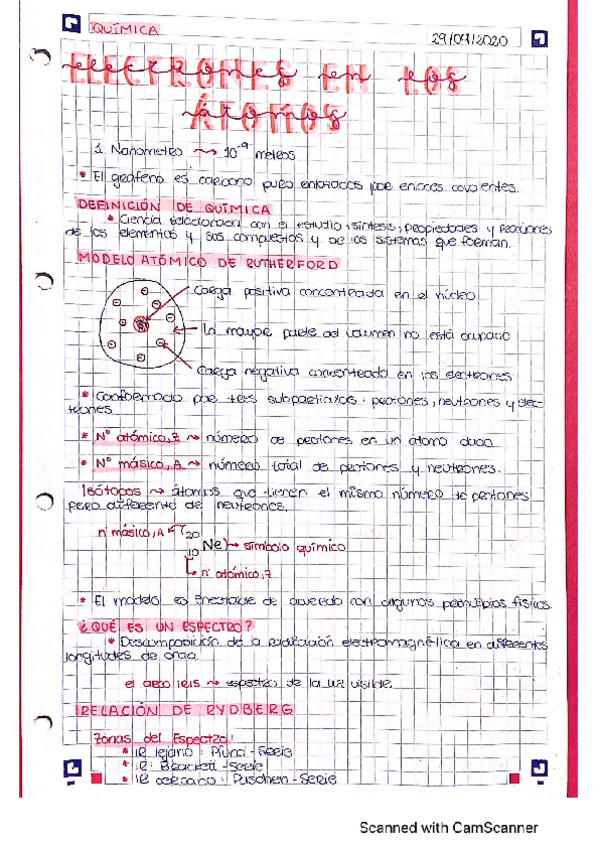 QUÍMICA
29/09/2020
ELECTRONES EN LOS
ÁTOMOS
1 Nanometro ⇝ 10⁻⁹ metros
* El grafeno es carbono puro enlazados por enlaces covalentes.
DEFINICIÓN DE QUÍMICA
* Ciencia relacionada con el estudio, síntesis, propiedades y reacciones
de los elementos y sus compuestos y de los sistemas que forman.
MODELO ATÓMICO DE RUTHERFORD
Carga positiva concentrada en el núcleo
La mayor parte del volumen no está ocupado
Carga negativa concentrada en los electrones
* Conformado por tres subpartículas: protones, neutrones y elec-
trones
* Nº atómico, Z ⇝ número de protones en un átomo dado.
* Nº másico, A ⇝ número total de protones y neutrones.
Isótopos ⇝ átomos que tienen el mismo número de protones
pero diferente de neutrones.
nº másico, A
20
10 Ne → símbolo químico
nº atómico, Z
* El modelo es inestable de acuerdo con algunos principios físicos.
¿QUÉ ES UN ESPECTRO?
* Descomposición de la radiación electromagnética en diferentes
longitudes de onda.
el arco iris ⇝ espectro de la luz visible.
RELACIÓN DE RYDBERG
Zonas del Espectro:
* IR lejano: Pfund-Serie
* IR: Brackett-Serie
* IR cercano: Paschen-Serie
Scanned with CamScanner